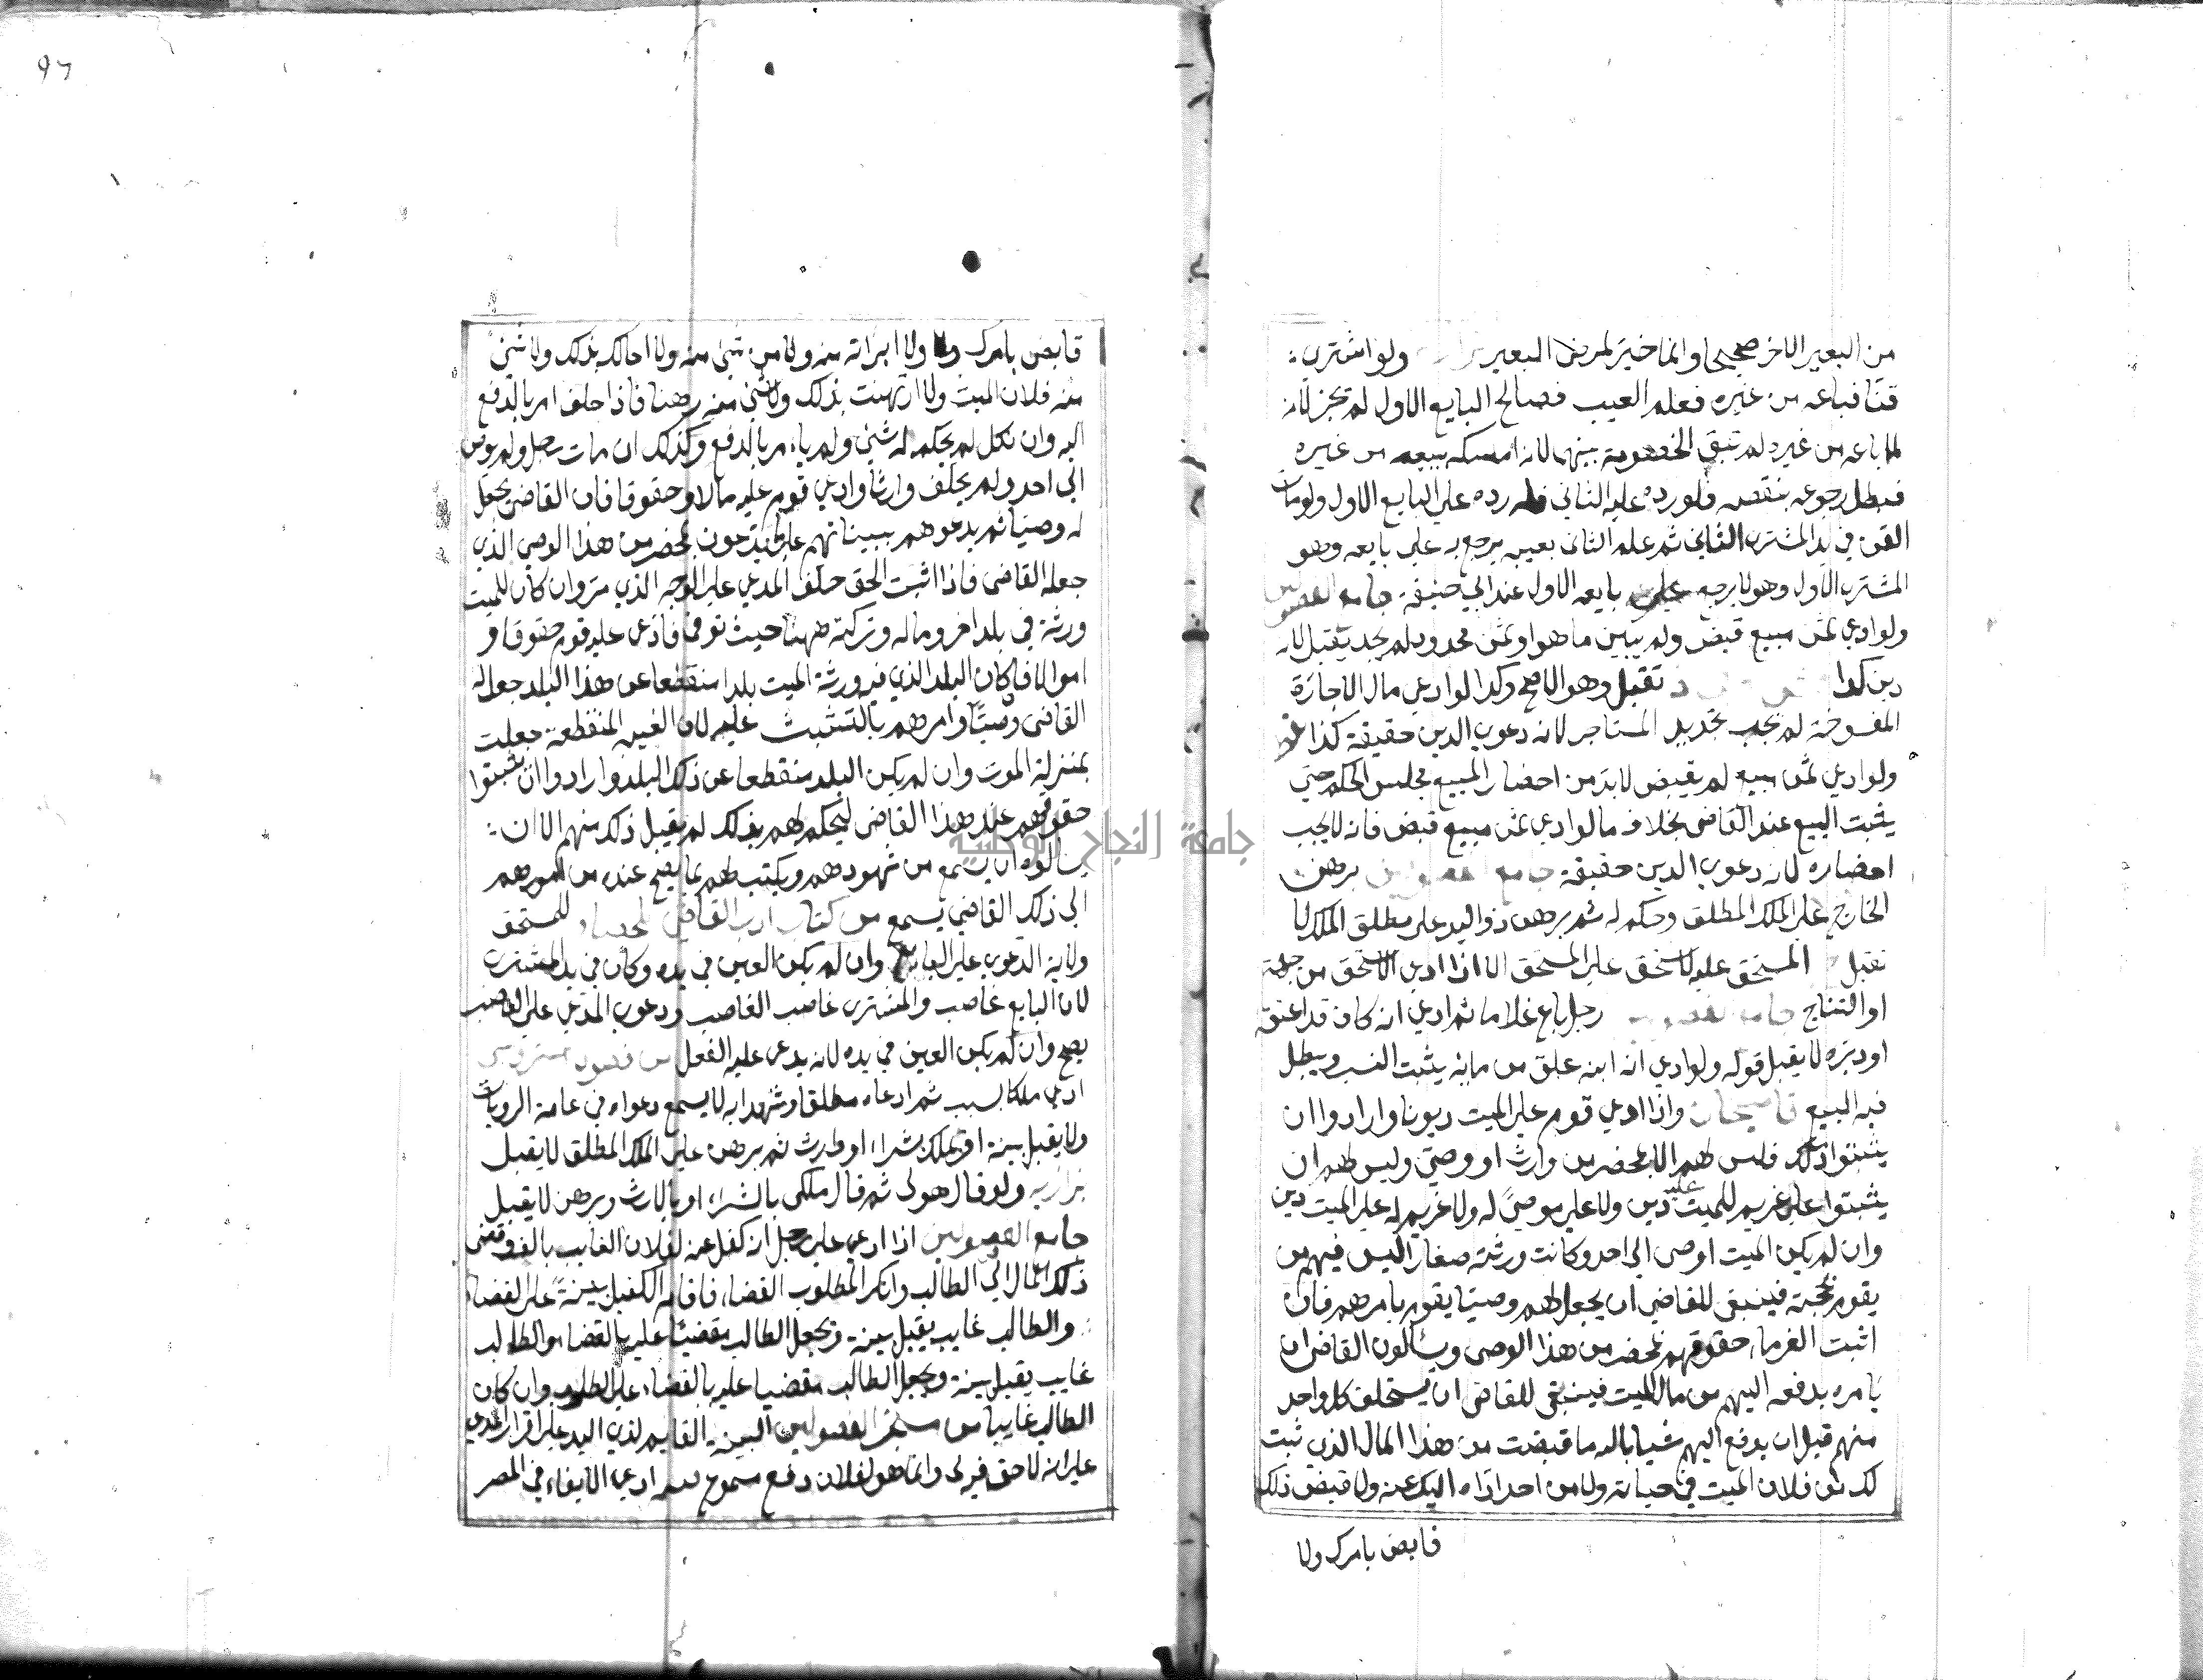 من البعير الاخر صحيحا وانما خير لمرض البعير ولو اشترى
قنا فباعه من غيره فعلم العيب فصالح البايع الاول لم تجز لانه
لما باعه من غيره لم تبق الخصومة بينهما لانه امسكه ببيعه من غيره
فبطل رجوعه بنقصه فلو رده عليه الثانى فله رده على البايع الاول ولو مات
القن في يد المشترى الثاني ثم علم الثانى بعيبه يرجع به على بايعه وهو
المشترى الاول وهو لا يرجع على بايعه الاول عند ابي حنيفة جامع الفصولين
ولو ادعى ثمن مبيع قبض ولم يبين ما هو او ثمن محدود لم يحد يقبل لانه
دين كذا تقبل وهو الاصح وكذا لو ادعى مال الاجارة
المفسوخة لم يجب تحديد المستاجر لانه دعوى الدين حقيقة كذا
ولو ادعى ثمن مبيع لم يقبض لا بد من احضار المبيع مجلس الحكم حتى
يثبت البيع عند القاضي بخلاف ما لو ادعى ثمن مبيع قبض فانه لا يجب
احضاره لانه دعوى الدين حقيقة جامع الفصولين برهن
الخارج على الملك المطلق وحكم له ثم برهن ذو اليد على مطلق الملك لا
تقبل المستحق عليه لا يستحق على المستحق الا اذا ادعى الاستحق من جهته
او النتاج جامع الفصولين رجل باع غلاما ثم ادعى انه كان قد اعتقه
او دبره لا يقبل قوله ولو ادعى انه ابنه علق من مائه يثبت النسب ويبطل
فيه البيع قاضيخان واذا ادعى قوم على الميت ديونا وارادوا ان
يثبتوا ذلك فليس لهم الا بمحضر من وارث او وصي وليس لهم ان
يثبتوا على غريم للميت عليه دين ولا على موصى له ولا غريم له على الميت دين
وان لم يكن الميت اوصى الى احد وكانت ورثته صغار اليس فيهم من
يقوم بحجته فينبغى للقاضي ان يجعل لهم وصيا يقوم بامرهم فان
اثبت الغرماء حقوقهم بمحضر من هذا الوصي ويسالون القاضي ان
يامره بدفعه اليهم من مال الميت فينبغى للقاضي ان يستحلف كل واحد
منهم قبل ان يدفع اليهم شيا بالله ما قبضت من هذا المال الذي ثبت
لك على فلان الميت في حياته ولا من احد اداه اليك عنه ولا قبض ذلك
قابض بامرك ولا
97
قابض بامرك ولا ابراته منه ولا من شئ منه ولا احالك بذلك ولا شئ
منه فلان الميت ولا ارتهنت بذلك ولا شئ منه رهنا فاذا حلف امر بالدفع
اليه وان نكل لم يحكم له بشئ ولم يامر بالدفع وكذلك ان مات رجل ولم يوص
الى احد ولم يخلف وارثا وادعى قوم عليه مالا وحقوقا فان القاضي يجعل
له وصيا ثم يدعوهم ببيناتهم على ما يدعون بمحضر من هذا الوصي الذي
جعله القاضي فاذا اثبت الحق حلف المدعي على الوجه الذي مر وان كان للميت
ورثة في بلد اخر وماله وتركته ههنا حيث توفى فادعى عليه قوم حقوقا و
اموالا فان كان البلد الذي فيه ورثة الميت بلدا منقطعا عن هذا البلد جعل له
القاضي وصيا وامرهم بالتثبت عليه لان الغيبة المنقطعة جعلت
بمنزلة الموت وان لم يكن البلد منقطعا عن ذلك البلد وارادوا ان يثبتوا
حقوقهم عند هذا القاضي ليحكم لهم بذلك لم يقبل ذلك منهم الا ان
يسالوه ان يسمع من شهودهم ويكتب لهم بما يصح عنده من امورهم
الى ذلك القاضي يسمع من كتاب ادب القاضي للخصاف للمستحق
ولاية الدعوى على البايع وان لم يكن العين في يده وكان في يد المشترى
لان البايع غاصب والمشترى غاصب الغاصب ودعوى المدعي على الغاصب
يصح وان لم يكن العين في يده لانه يدعى عليه الفعل من فصول استروشنى
ادعى ملكا بسبب ثم ادعاه مطلقا وشهدا به لا يسمع دعواه في عامة الروايات
ولا يقبل بينة ادعى ملك بشراء او ارث ثم برهن على الملك المطلق لا يقبل
بزازيه ولو قال هو لى ثم قال ملكى بالشراء او بالارث وبرهن لا يقبل
جامع الفصولين اذا ادعى على رجل انه كفل عنه لفلان الغايب بالف وقضى
ذلك المال الى الطالب وانكر المطلوب القضاء فاقام الكفيل بينة على القضاء
والطالب غايب يقبل بينة ويجعل الطالب مقضيا عليه بالقضاء والطالب
غايب يقبل بينة ويجعل الطالب مقضيا عليه بالقضاء على المطلوب وان كان
الطالب غايبا من الفصولين البينة القايم لذي اليد على اقرار المدعي
على انه لا حق فيه لى وانما هو لفلان دفع مسموع ادعى الايفاء في المصر
جامعة النجاح الوطنية